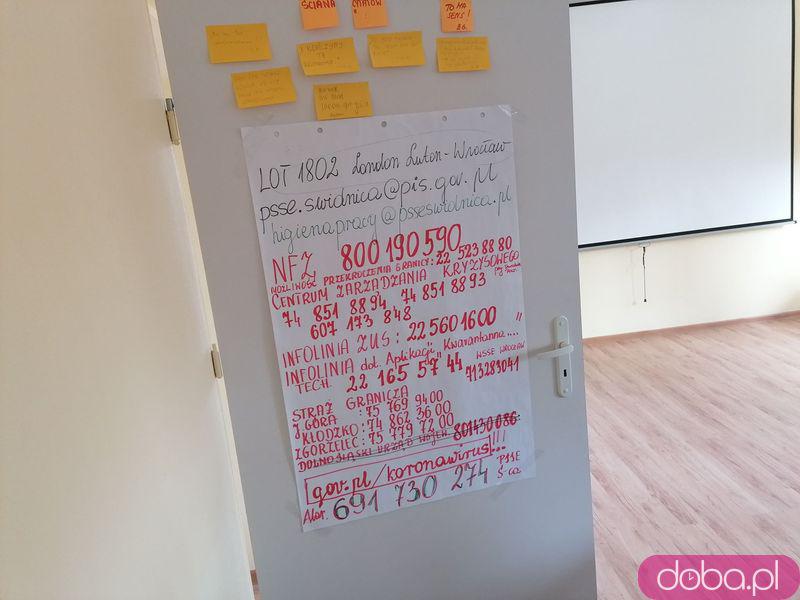 ŚCIANA
TO MA
SENS!
LOT 1802 London Luton - Wrocław
psse.swidnica@pis.gov.pl
higienapracy@psseswidnica.pl
NFZ 800 190 590
MOŻLIWOŚĆ PRZEKROCZENIA GRANICY: 22 523 88 80
CENTRUM ZARZĄDZANIA KRYZYSOWEGO
74 851 88 94 74 851 88 93
607 173 848
INFOLINIA ZUS: 22 560 16 00
INFOLINIA dot. Aplikacji „Kwarantanna..."
TECH. 22 165 57 44 WSSE WROCŁAW
713283041
STRAŻ GRANICZA
J GÓRA : 75 769 94 00
KŁODZKO: 74 862 36 00
ZGORZELEC: 75 779 72 00
DOLNOŚLĄSKI URZĄD WOJEW. 801430086
gov.pl/koronawirus !!!
Alar. 691 730 274 PSSE
Ś-ca
doba.pl